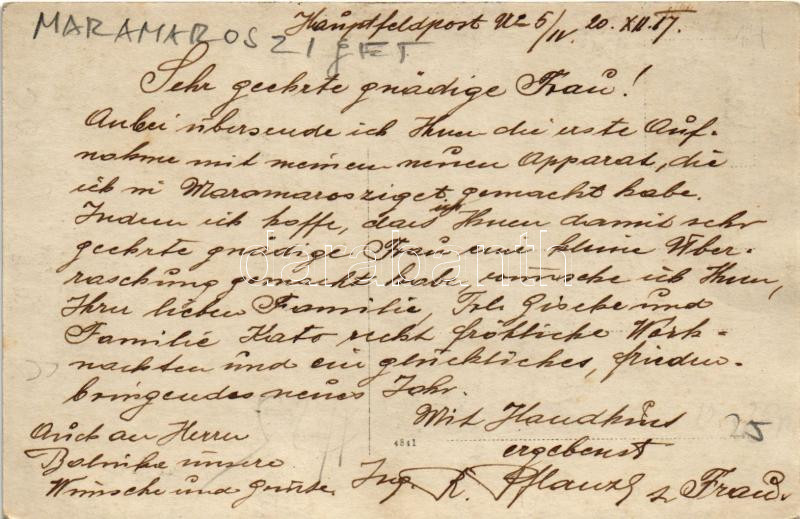 MARAMAROSZIGET
Hauptfeldpost No 5/IV 20. XII. 17.
Sehr geehrte gnädige Frau!
Anbei übersende ich Ihnen die erste Auf-
nahme mit meinen neuen Apparat, die
ich in Maramarosziget gemacht habe.
Indem ich hoffe, dass ich Ihnen damit sehr
geehrte gnädige Frau eine kleine Über-
raschung gemacht habe wünsche ich Ihnen,
Ihrer lieben Familie, Frl. Giseke und
Familie Kato recht fröhliche Weih-
nachten und ein glückliches, frieden-
bringendes neues Jahr.
Mit Handkuss
ergebenst
Ing. R. s Frau.
Auch an Herrn
unsere
Wünsche und Grüsse
4841
25
darabanth